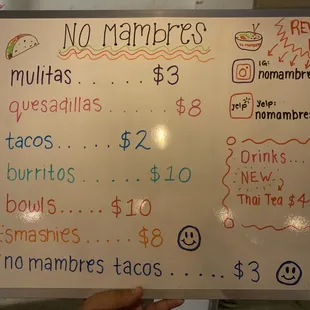 NO MAMBRES
mulitas ..... $3
quesadillas ..... $8
tacos ..... $2
burritos ..... $10
bowls..... $10
smashies ..... $8
no mambres tacos ..... $3
IG:
nomambre
yelp
yelp:
nomambre
Drinks...
NEW
Thai Tea $4